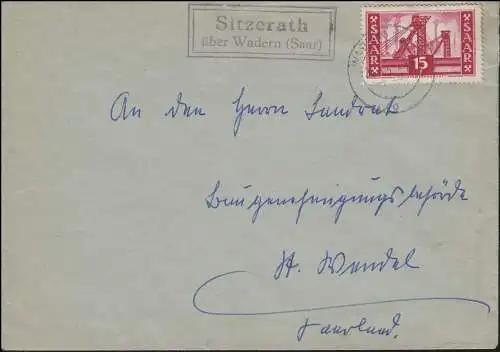 Sitzerath
über Wadern (Saar)
SAAR 15 SAAR
An den Herrn Landrat
Baugenehmigungsbehörde
St. Wendel
Saarland.